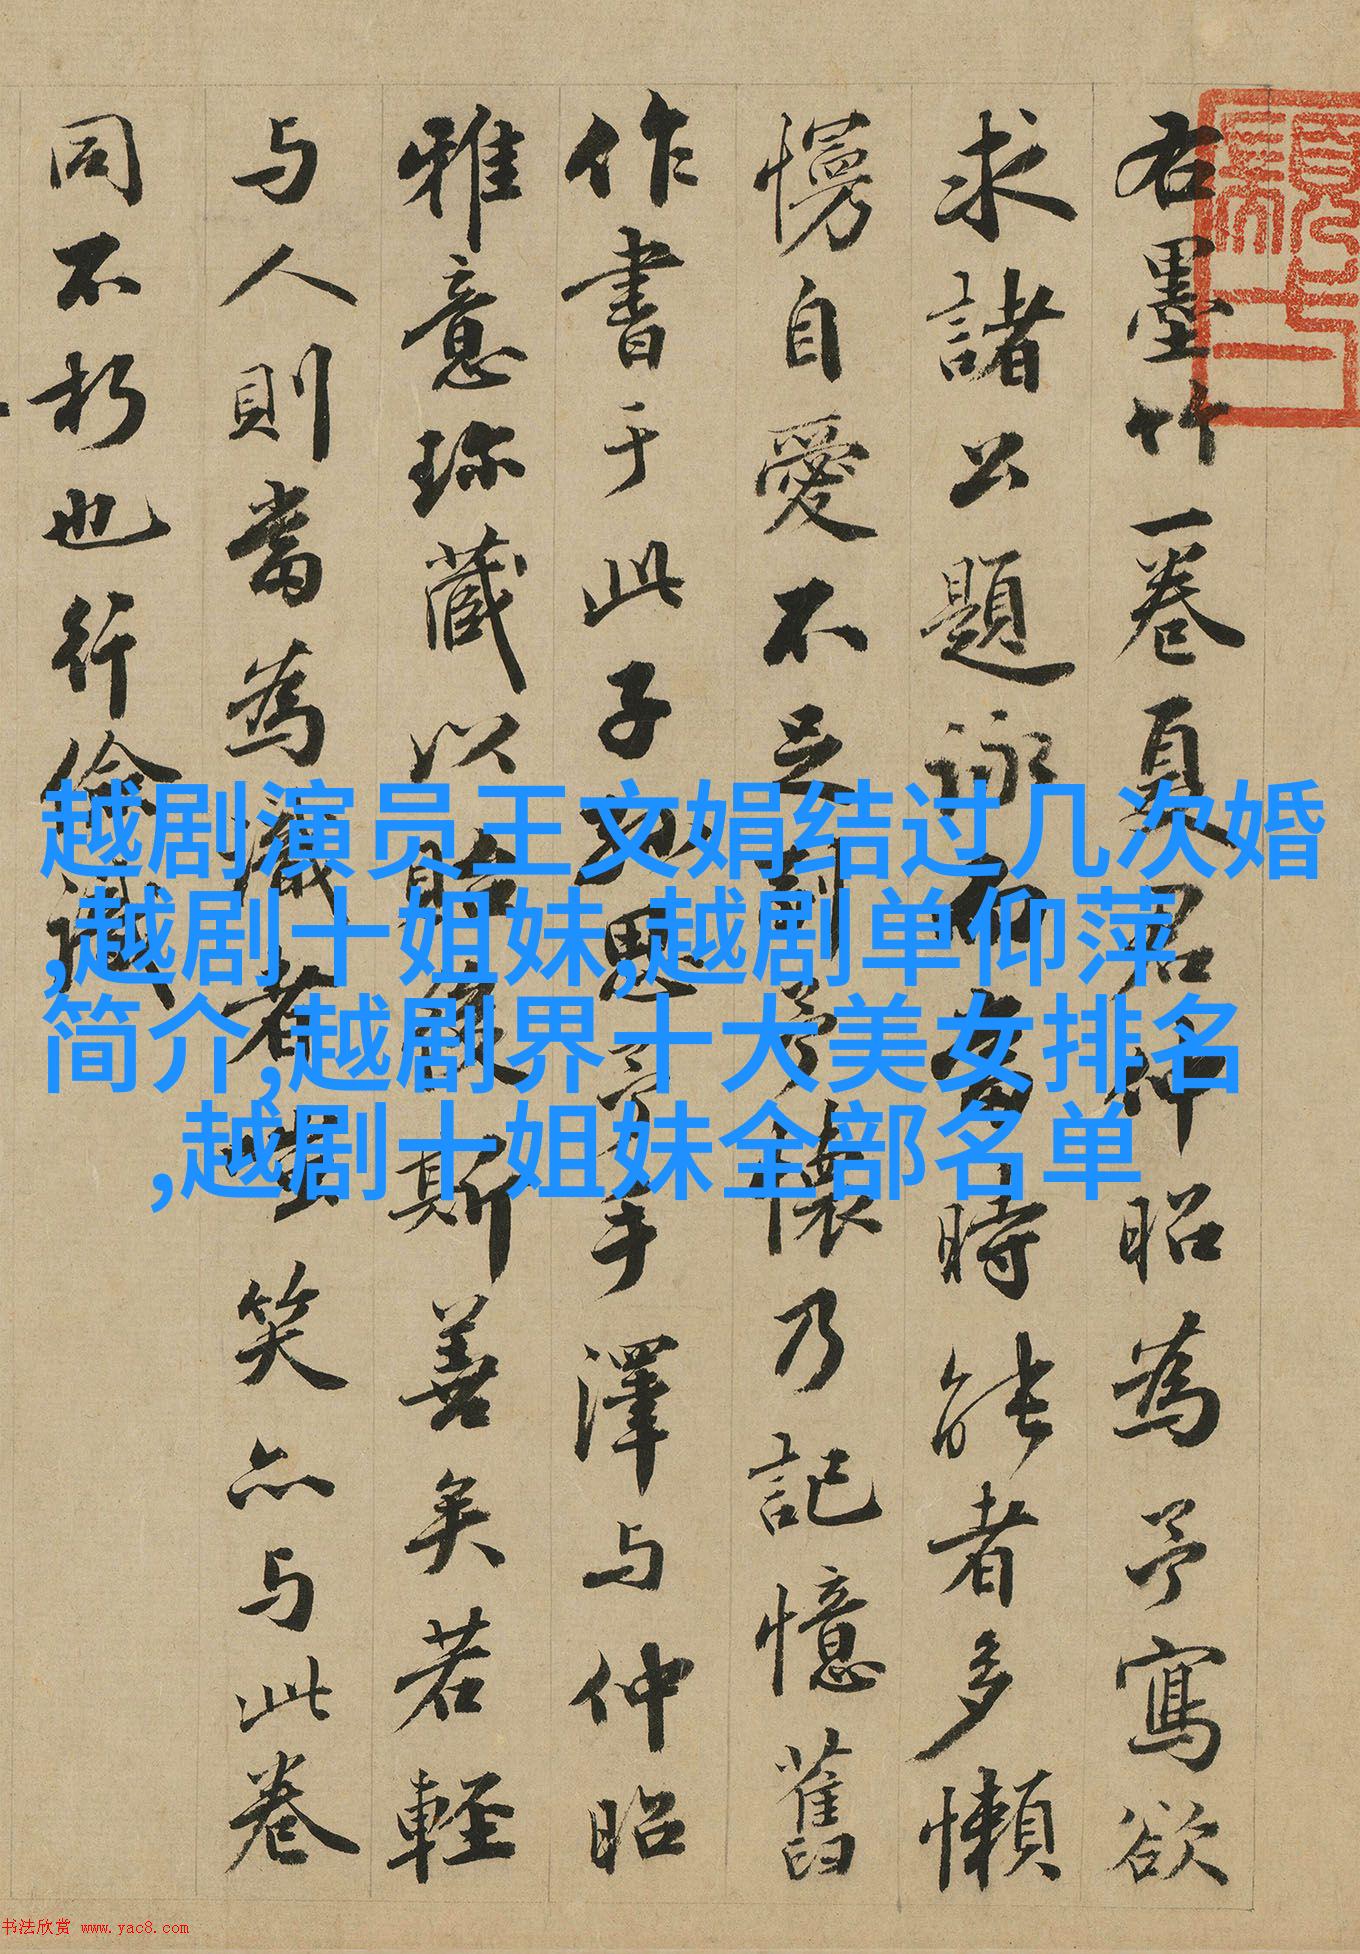 右墨竹一卷夏君仲昭為予寫欲
求諸公題詠而當時能者多懶
慢自愛不足副予懷乃記憶舊
作書于此子思予手澤与仲昭
雅意珎藏以貽斯善矣若輕
与人則當為識者嗤笑亦与此卷
同不朽也行儉識
越剧演员王文娟结过几次婚
,越剧十姐妹,越剧单仰萍
简介,越剧界十大美女排名
,越剧十姐妹全部名单
书法欣赏 www.yac8.com